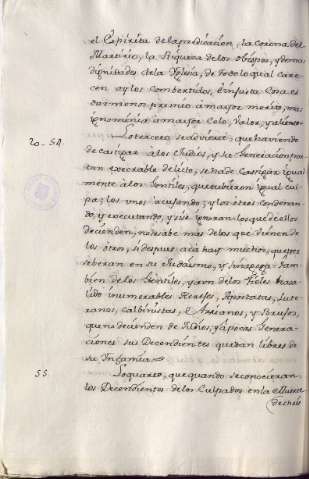 el Espiritu de la predicacion, la corona del
Martirio, la Riqueza de los Obispos, y demas
dignidades de la Yglesia, de todo lo qual care-
cen oy los combertidos, è injusta Cosa es
dar menos premio à mayor merito, mas
ignominia à mayor Celo, Valor, y
20-54 Lo tercero se advierte que haviendo
de castigar à los Judios, y su Generacion, por
tan execrable delito, se ha de Castigar igual
mente à los Gentiles, que tubieron igual cul-
pa; los unos acusando; y los otros condenan-
do, y executando, y si se ignoran los que de ellos
decienden, no se sabe mas de los que vienen de
los otros, si despues acà hay muchos, que per-
seberan en su Judaismo, y tam-
bien de los Gentiles, y aun de los Fieles han
salido inumerables Hereges, Apostatas, Lute-
ranos, Calbinistas, è Arrianos, y
que no decienden de Judios, y à pocas Genera-
ciones sus Decendientes quedan libres de
su Infamia
55 Lo quarto, que quando se conocieran
los Decendientes de los Culpados en la Muerte
de Christo